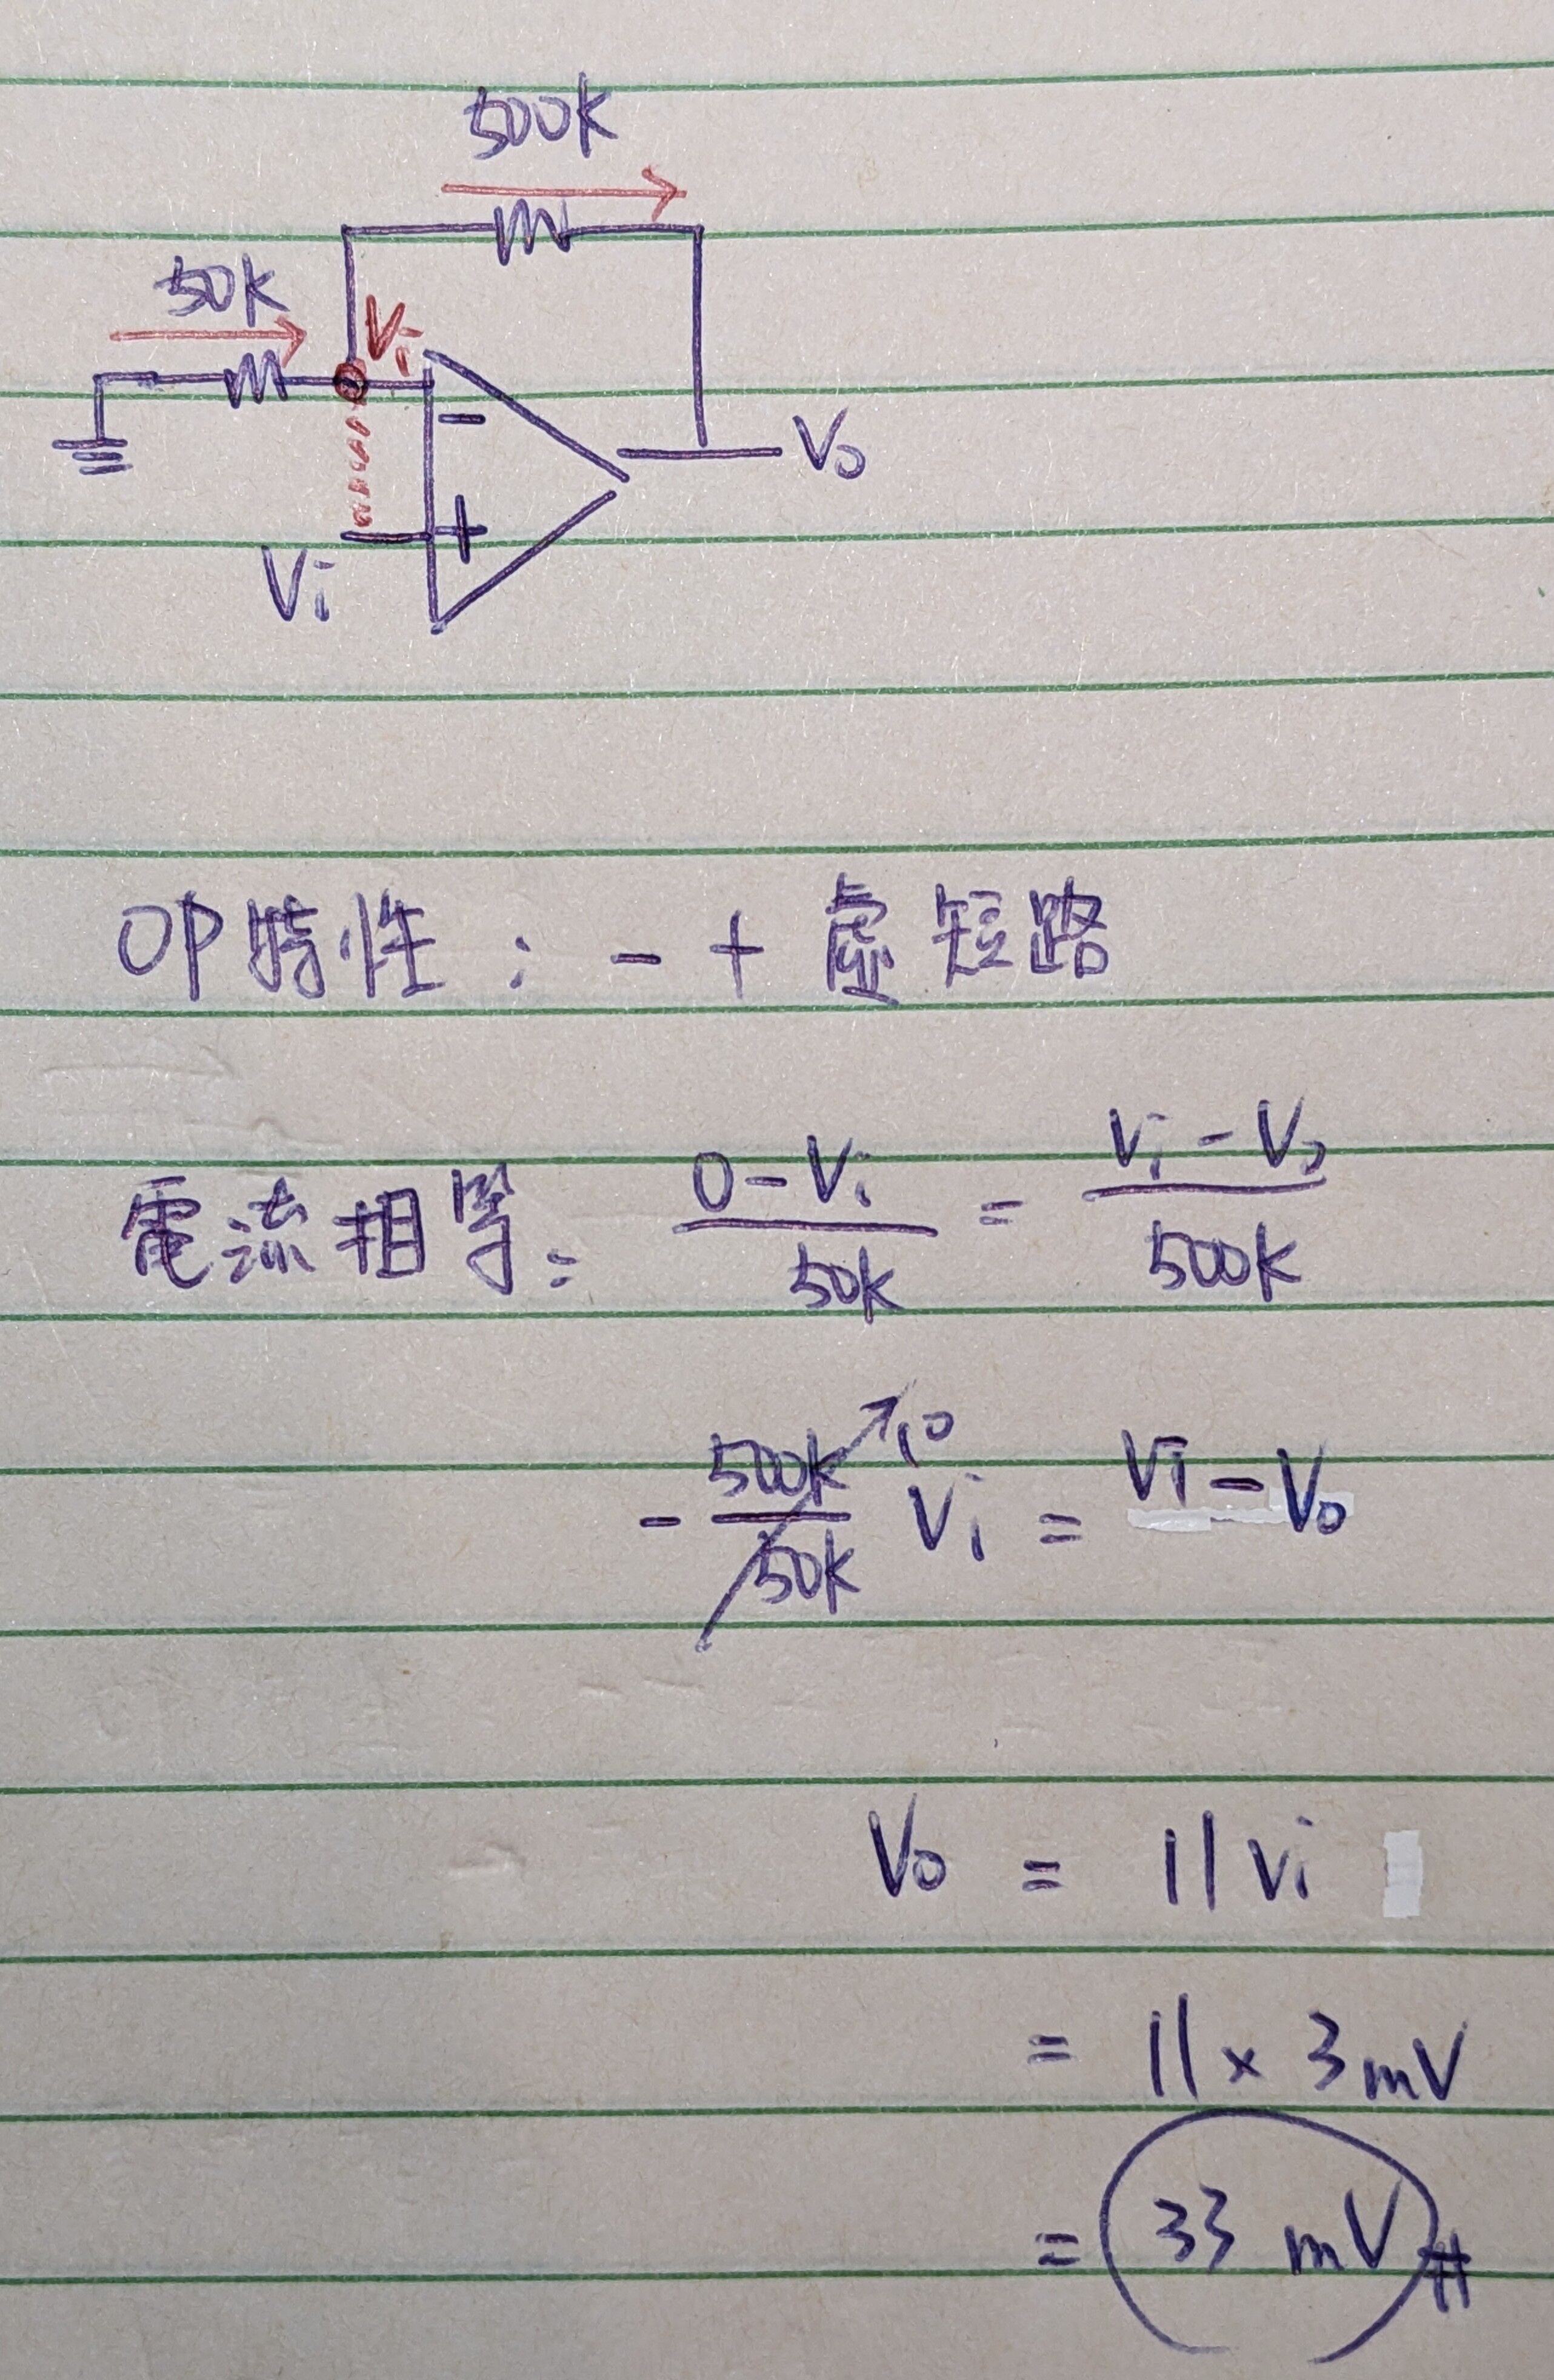 500K
50K
Vi
Vo
Vi
- +
OP特性：- + 虛短路
電流相等： (0-Vi)/50K = (Vi-Vo)/500K
- 500K/50K 10 Vi = Vi-Vo
Vo = 11Vi
= 11 × 3mV
= 33 mV #